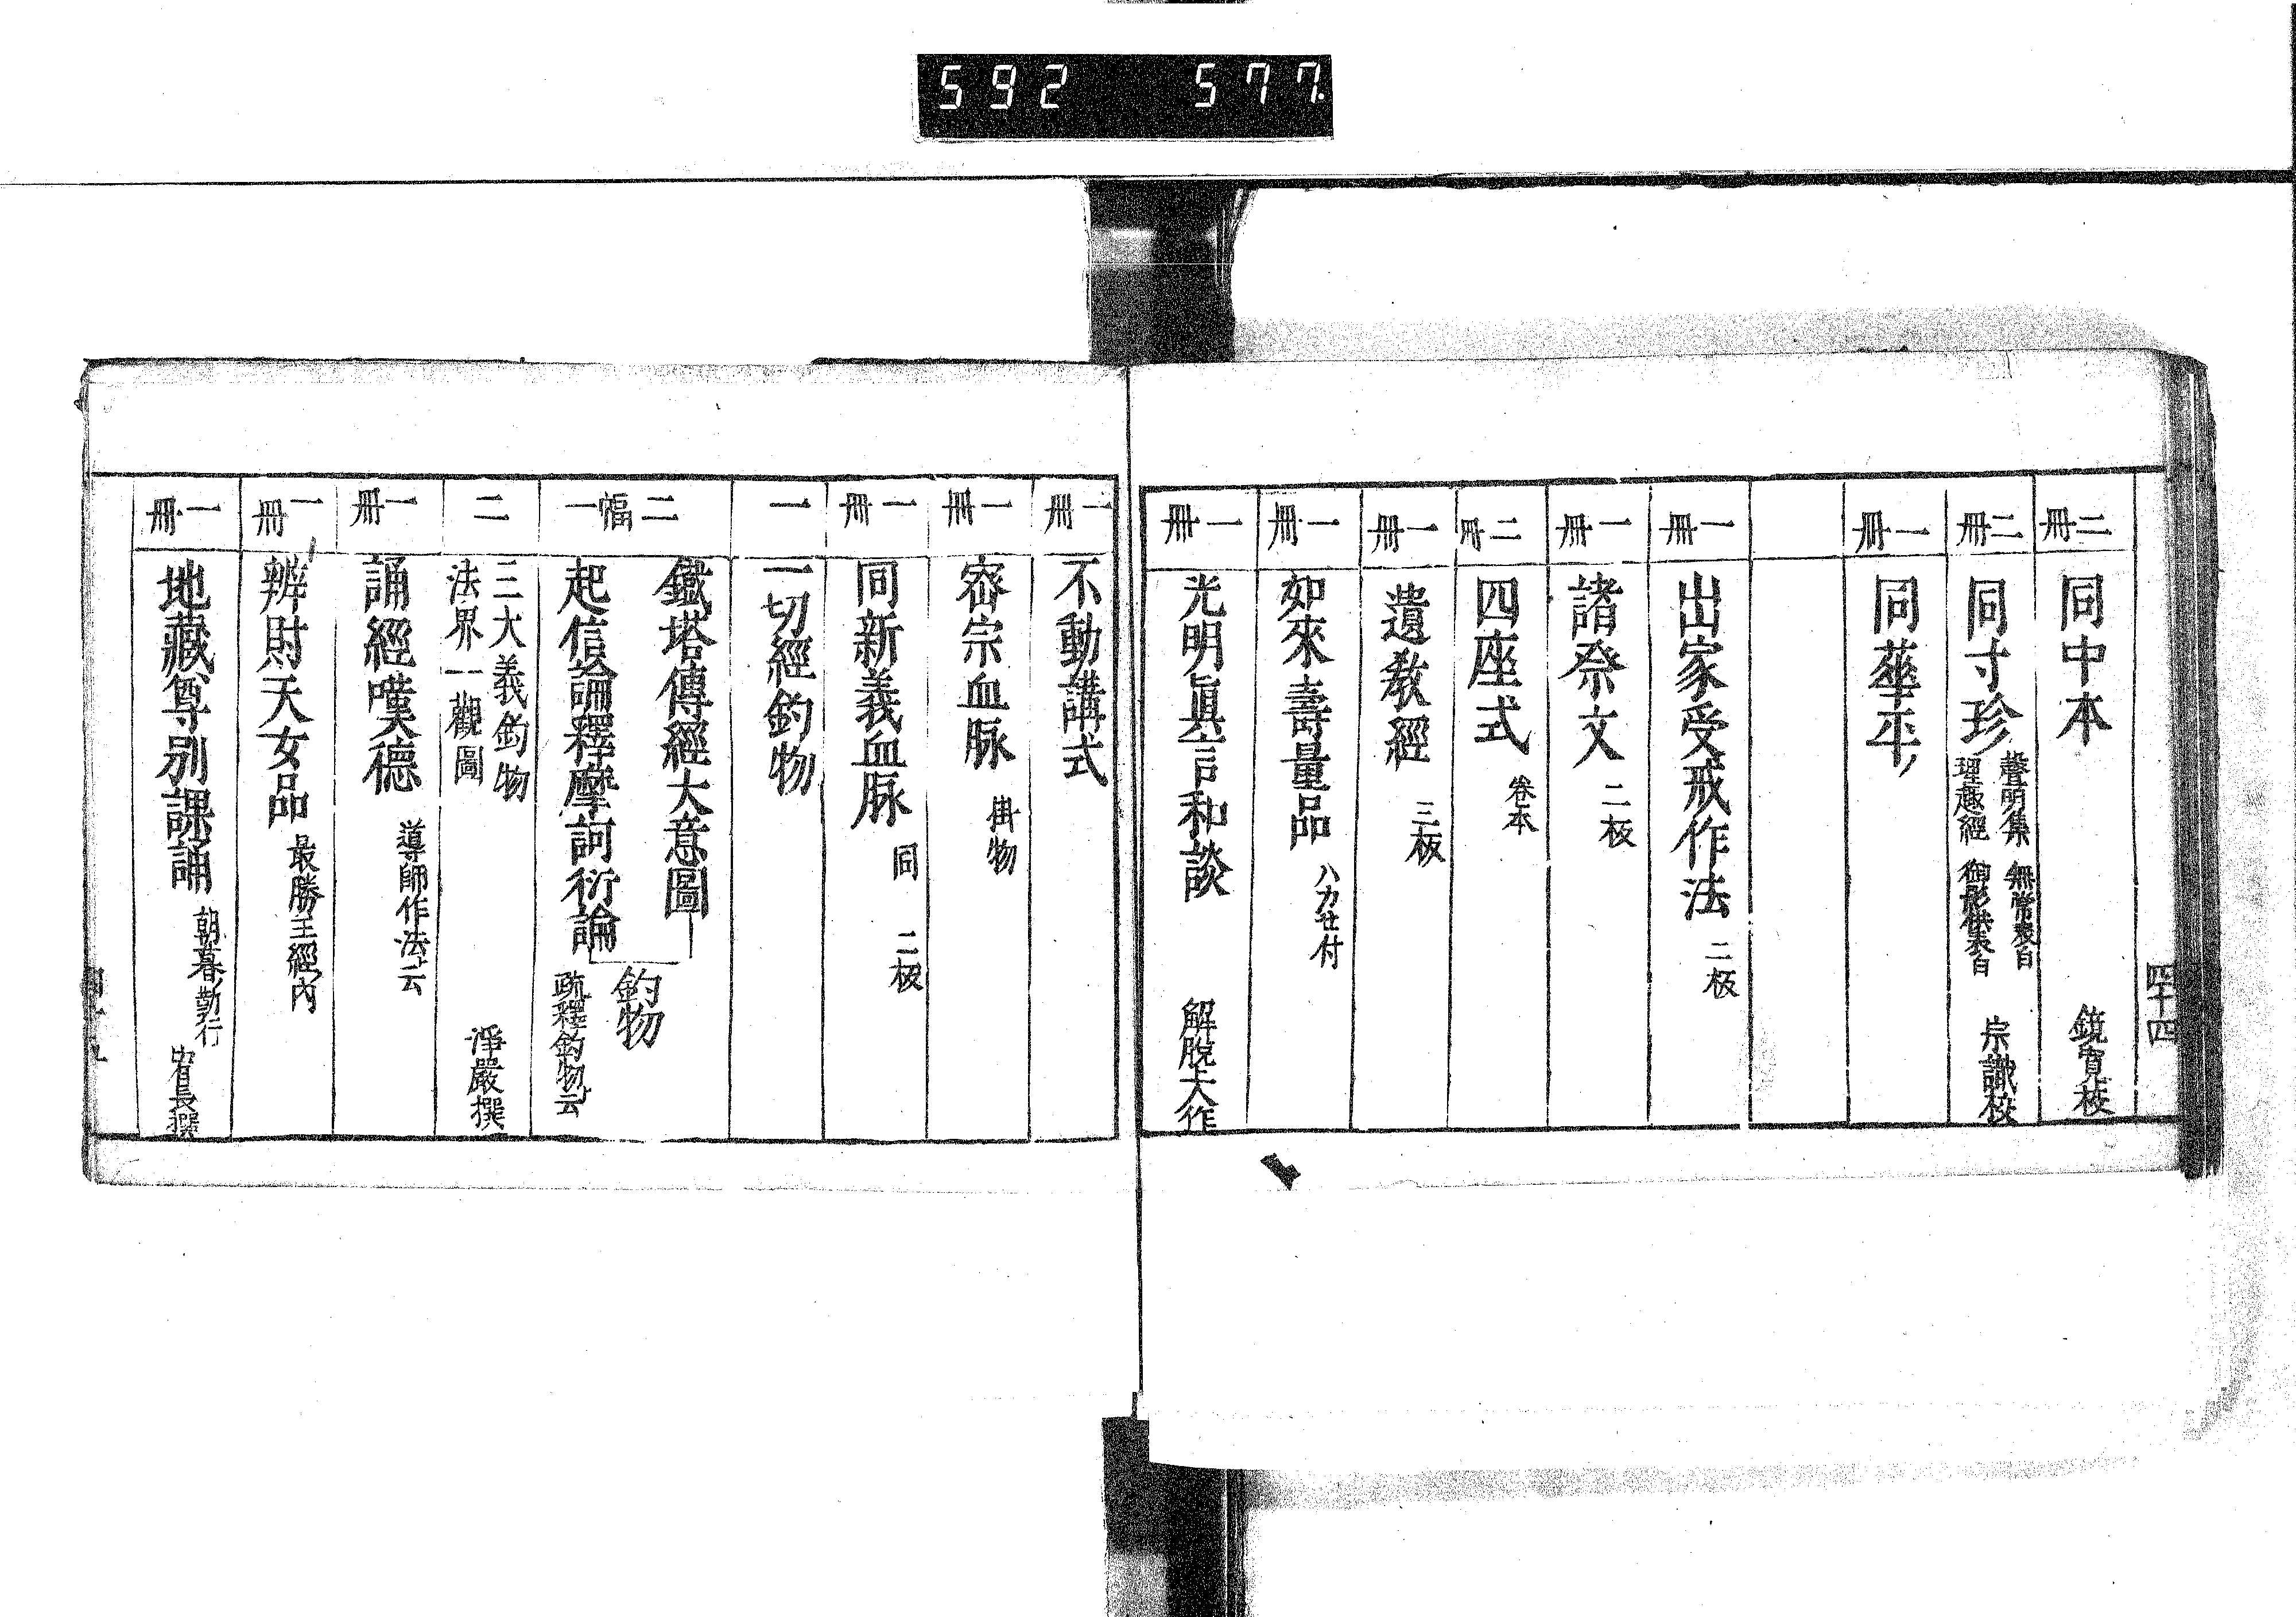 592 577.
四十四
二冊 同中本 鏡寛校
二冊 同寸珍 聲明集 理趣經 無常表白 御影供表白 宗識校
一冊 同華平
一冊 出家受戒作法 二板
一冊 諸祭文 二板
二冊 四座式 卷本
一冊 遺教經 三板
一冊 如來壽量品 付
一冊 光明眞言和談 解脫大作
一冊 不動講式
一冊 宻宗血脉 掛物
一冊 同新義血脉 同 二板
一 一切經釣物
二幅 鐵塔傳經大意圖
一 起信論釋摩訶衍論 釣物 疏釋釣物云
二 三大義釣物 法界一觀圖 淨嚴撰
一冊 誦經嘆德 導師作法云
一冊 辨財天女品 最勝王經内
一冊 地藏尊別課誦 朝暮勤行 宥長撰